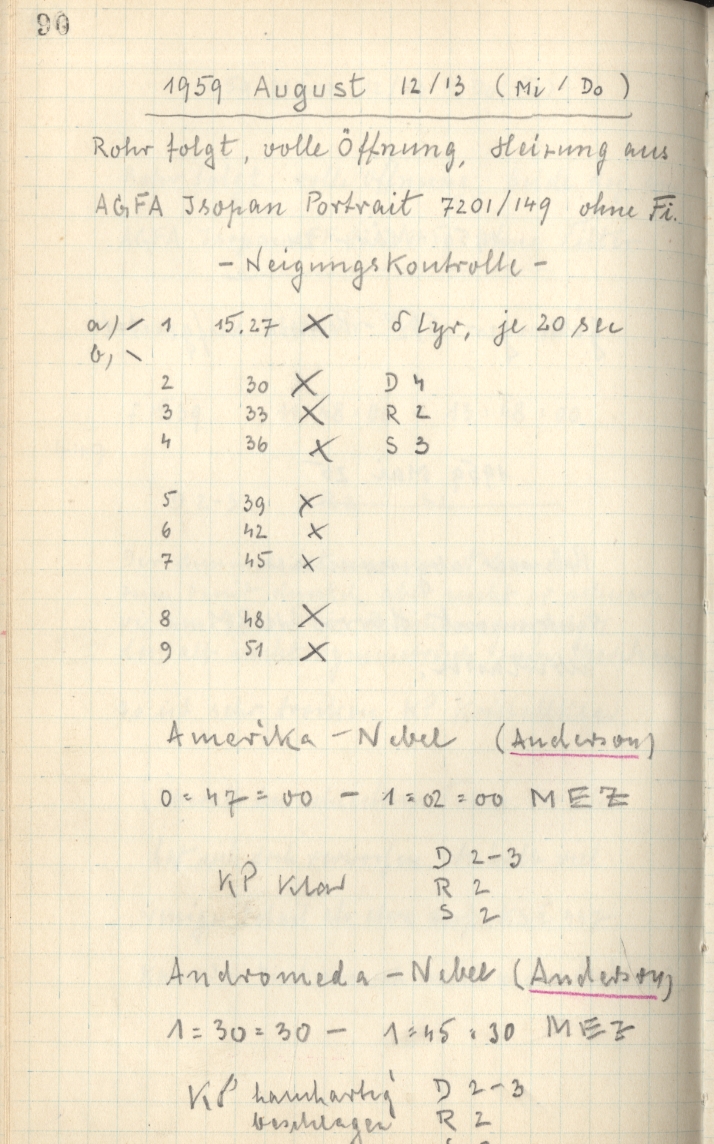 90
1959 August 12/13 (Mi/Do)
Rohr folgt, volle Öffnung, Heizung aus
AGFA Isopan Portrait 7201/149 ohne Fi.
- Neigungskontrolle -
a) / 1 15.27 X δ Lyr, je 20 sec
b) \
2 30 X D 4
3 33 X R 2
4 36 X S 3
5 39 X
6 42 X
7 45 X
8 48 X
9 51 X
Amerika - Nebel (Anderson)
0=47=00 - 1=02=00 MEZ
D 2-3
KP klar R 2
S 2
Andromeda - Nebel (Anderson)
1=30=30 - 1=45=30 MEZ
KP hauchartig D 2-3
beschlagen R 2